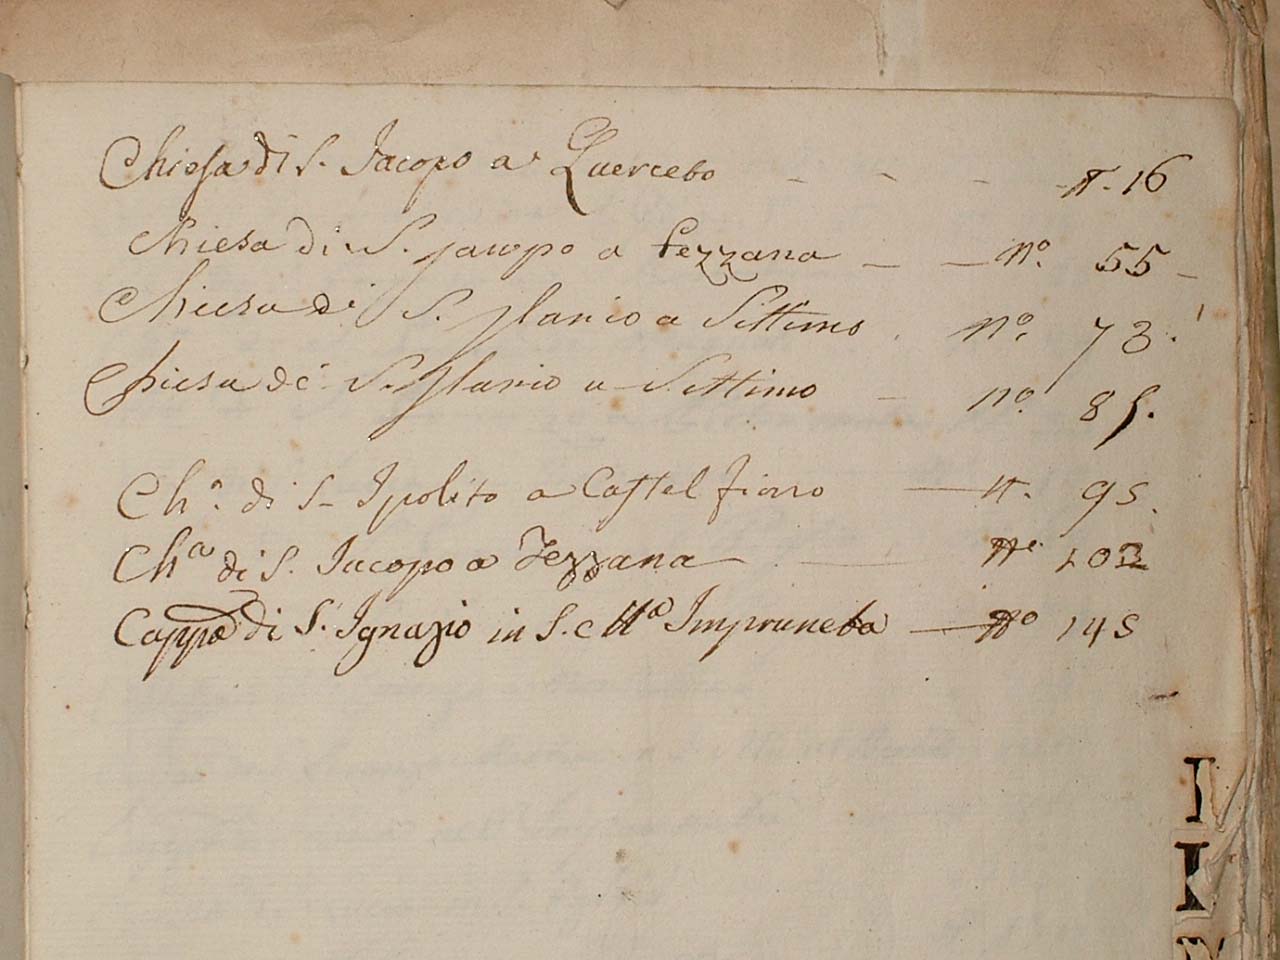 Chiesa di S. Jacopo a Querceto - - - N. 16
Chiesa di S. Jacopo a Pezzana - - No. 55 -
Chiesa di S. Ilario a Settimo . No. 73.
Chiesa di S. Ilario a Settimo - No. 85.
Cha. di S. Ipolito a Castel fiorno - N. 95.
Cha di S. Jacopo a Tezzana - No 103
Cappa di S. Ignazio in S. e Ma Impruneta - No 145
I
K